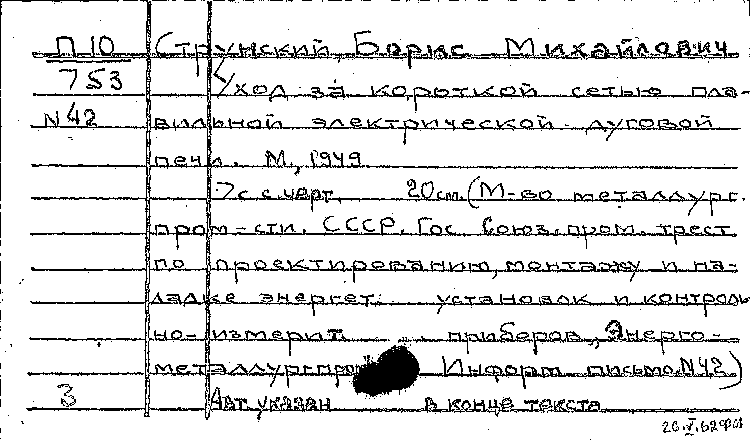 П 10 Струнский, Борис Михайлович
753 Уход за короткой сетью пла-
N 42 вильной электрической дуговой
печи. М., 1949
7 с с черт. 20 см. (М-во металлург.
пром-сти. СССР. Гос. Союз. пром. трест
по проектированию, монтажу и на-
ладке энергет. установок и контроль
но-измерит. приборов „Энерго-
металлургпром Информ письмо. N42)
3 Авт. указан в конце текста